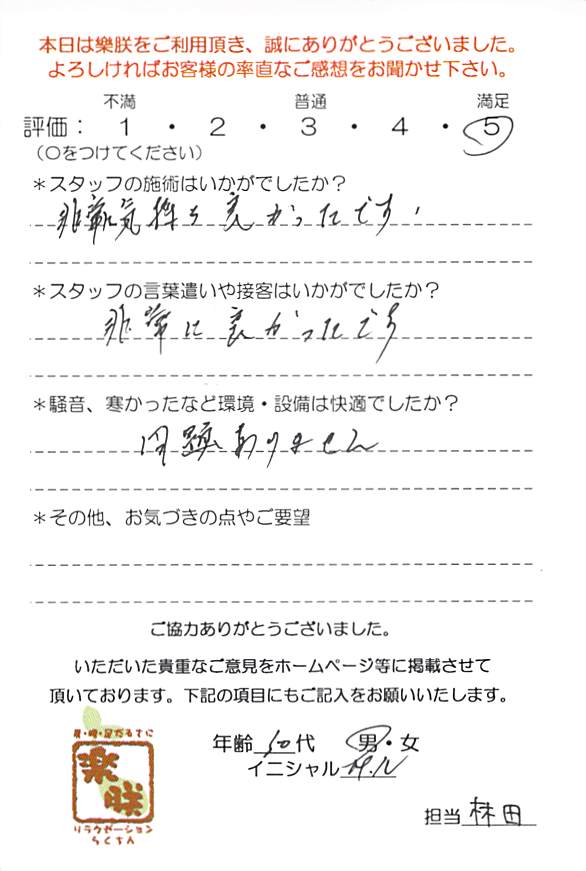 本日は樂朕をご利用頂き、誠にありがとうございました。
よろしければお客様の率直なご感想をお聞かせ下さい。
不満 普通 満足
評価： 1 ・ 2 ・ 3 ・ 4 ・ 5
（〇をつけてください）
＊スタッフの施術はいかがでしたか？
非常気持ち良かったです．
＊スタッフの言葉遣いや接客はいかがでしたか？
非常に良かったです
＊騒音、寒かったなど環境・設備は快適でしたか？
問題ありません
＊その他、お気づきの点やご要望
ご協力ありがとうございました。
いただいた貴重なご意見をホームページ等に掲載させて
頂いております。下記の項目にもご記入をお願いいたします。
肩・腰・足だるすに
樂朕
リラクゼーション
らくちん
年齢 50代 男・女
イニシャル H.N
担当 林田